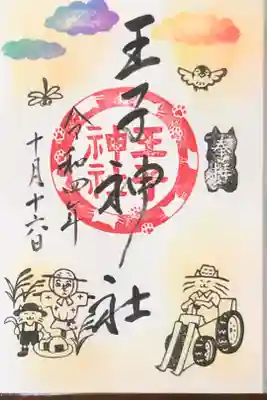 奉拝
王子神社
王子神社
令和四年
十月十六日